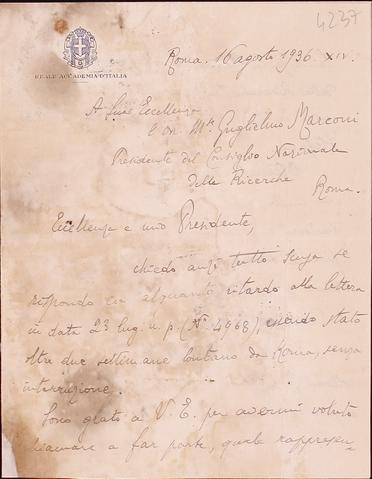 4237
REALE ACCADEMIA D'ITALIA
Roma. 16 agosto 1936 XIV.
A Sua Eccellenza
l'on. M.se Guglielmo Marconi
Presidente del Consiglio Nazionale
delle Ricerche
Roma.
Eccellenza e mio Presidente,
chiedo anzi tutto scusa se
rispondo con alquanto ritardo alla lettera
in data 23 lug. u. p. (N° 4968), essendo stato
oltre due settimane lontano da Roma, senza
interruzione.
Sono grato a V. E. per avermi voluto
chiamare a far parte, quale rappresen-